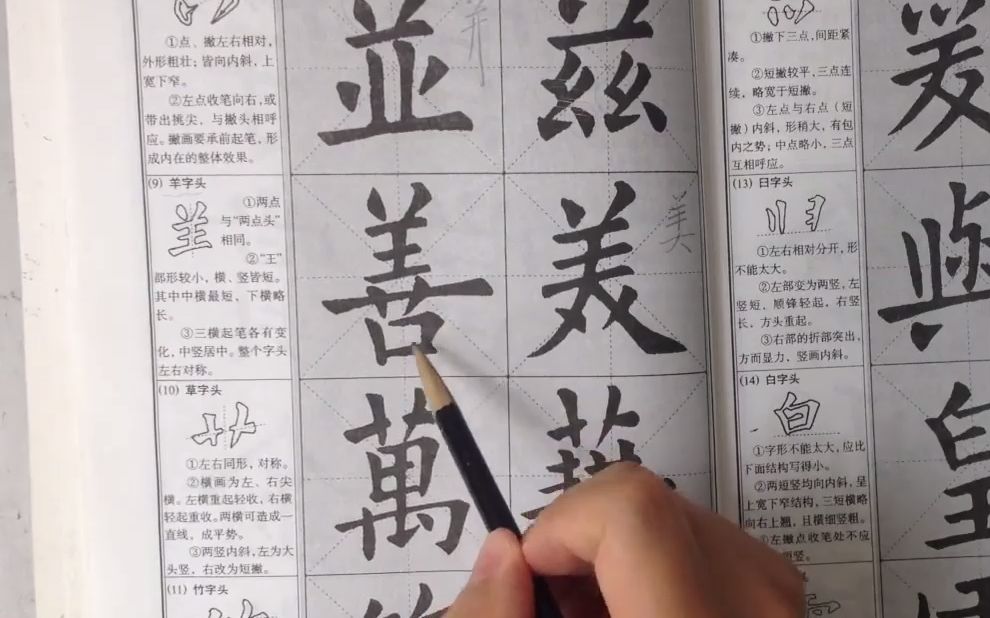 ①点、撇左右相对,
外形粗壮;皆向内斜,上
宽下窄。
②左点收笔向右,或
带出挑尖、与撇头相呼
应。撇画要承前起笔,形
成内在的整体效果。
並
兹
羊
(9) 羊字头
①两点
与“两点头”
相同。
②“王”
部形较小,横、竖皆短。
其中中横最短,下横略
长。
③三横起笔各有变
化,中竖居中。整个字头
左右对称。
善
美
美
(10) 草字头
①左右同形,对称。
②横画为左、右尖
横。左横重起轻收,右横
轻起重收。两横可造成一
直线,成平势。
③两竖内斜,左为大
头竖,右改为短撇。
萬
(11) 竹字头
①撇下三点,间距紧
凑。
②短撇较平,三点连
续,略宽于短撇。
③左点与右点(短
撇)内斜,形稍大,有包
内之势;中点略小,三点
互相呼应。
(13) 臼字头
①左右相对分开,形
不能太大。
②左部变为两竖,左
竖短,顺锋轻起,右竖
长,方头重起。
③右部的折部突出,
方而显力,竖画内斜。
(14) 白字头
白
①字形不能太大,应比
下面结构写得小。
②两短竖均向内斜,呈
上宽下窄结构,三短横略
向右上翘,且横细竖粗。
①左撇点收笔处不应
皇